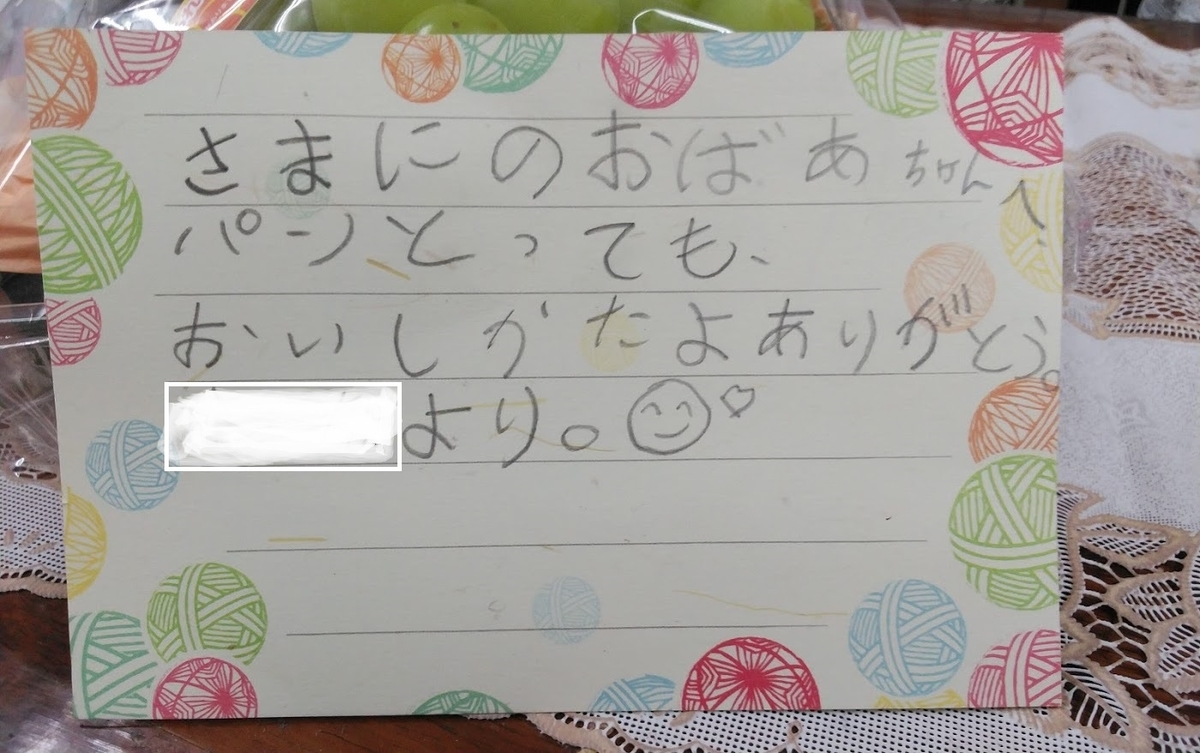 さまにのおばあちゃんへ
パンとっても、
おいしかたよありがとう。
より。